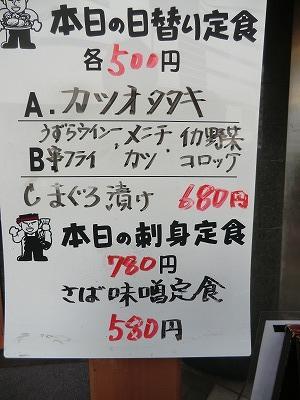 本日の日替り定食
各500円
A.カツオタタキ
うずらウインー、メニチ・イカ野菜
B串フライ カツ コロッケ
Cまぐろ漬け 680円
本日の刺身定食
780円
さば味噌定食
580円